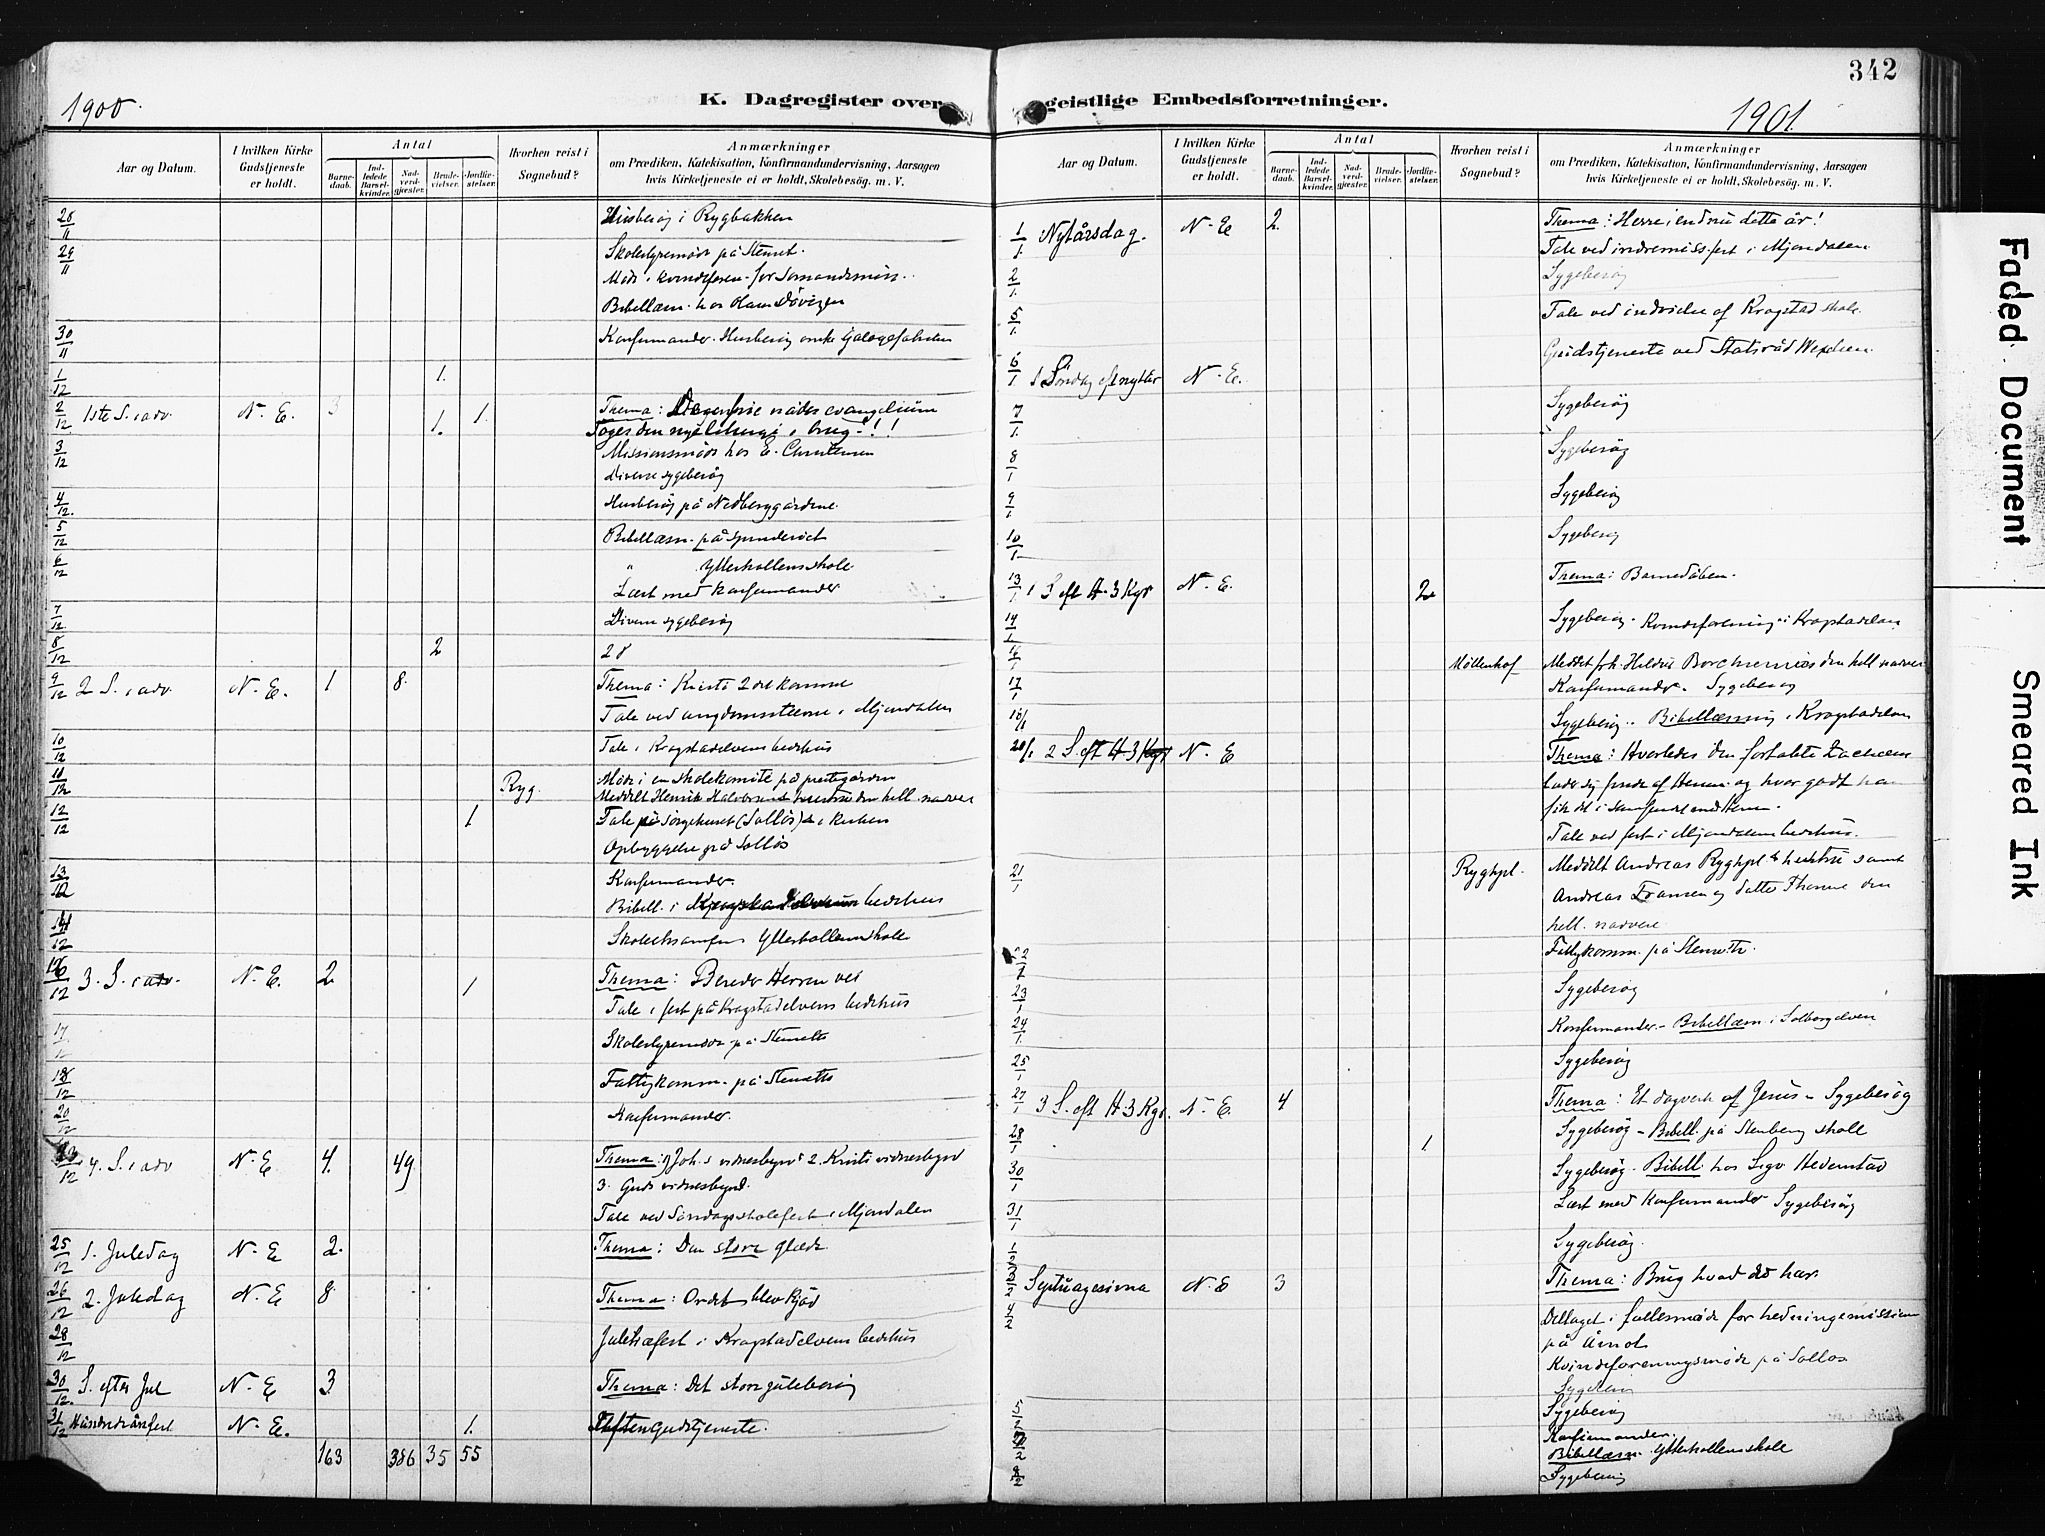 342
1900.
K. Dagregister over
geistlige Embedsforretninger.
1901.
Aar og Datum.
I hvilken Kirke Gudstjeneste er holdt.
Antal
Barnedaab.
Inddledede Barselkvinder.
Nadverdgjester.
Brudevielser.
Jordfæstelser.
Hvorhen reist i Sognebud?
Anmærkninger
om Prædiken, Katekisation, Konfirmandundervisning, Aarsagen
hvis Kirketjeneste ei er holdt, Skolebesög. m. V.
28/11 Husbesøg i Rygbakken
29/11 Skolestyremøde på Stenset.
Bibellæsn. hos
30/11 Konfirmander. Husbesøg
1/12 1.
2/12 1ste S. i adv. N. E. 3 1. 1. Thema: evangelium
3/12 Missionsmøde hos E. Christensen
Diverse sygebesøg
4/12. Husbesøg på Nedberggårdene.
5/12 Bibellæsn. på
6/12 " Ytterkollens skole
Læst med konfirmander
7/12. Diverse sygebesøg
8/12 2
9/12 2 S. i adv. N. E. 1 8. Thema: Kristi 2det komme
Tale ved i Mjøndalen
10/12 Tale i Krogstadelvens bedehus
Ryg. Møde i en skolekomité på prestegården
Meddelt Henrik den hell. nadver
12/12 1 Tale på sørgehuset (Solløs)
Opbyggelse på Solløs
13/12 Konfirmander.
Bibell. i bedehus
14/12 Skoleeksamen Ytterkollens skole
16/12 3. S. i adv. N. E. 2 1 Thema: Bereder Herrens vei
Tale i fest på Krogstadelvens bedehus
17/12 Skolestyremøde på Stensets
18/12 Fattigkomm. på Stensets
20/12 Konfirmander.
23/12 4. S. i adv N. E. 4. 49 Thema: 1 Joh.s vidnesbyrd 2. Kristi vidnesbyrd
3. Guds vidnesbyrd.
Tale ved Søndagsskolefest i Mjøndalen
25/12 1. Juledag N. E 2. Thema: Den store glæde.
26/12 2. Juledag N. E 8. Thema: Ordet blev kjød
28/12 Juletræfest i Krogstadelvens bedehus
30/12. S. efter Jul N. E 3. Thema: Det store julebesøg
31/12 Hundredårsfest N. E. 1. gudstjeneste.
163 386 35 55
Aar og Datum.
I hvilken Kirke Gudstjeneste er holdt.
Antal
Barnedaab.
Inddledede Barselkvinder.
Nadverdgjester.
Brudevielser.
Jordfæstelser.
Hvorhen reist i Sognebud?
Anmærkninger
om Prædiken, Katekisation, Konfirmandundervisning, Aarsagen
hvis Kirketjeneste ei er holdt, Skolebesög. m. V.
1/1. Nytårsdag. N. E 2. Thema: Herre i endnu dette år!
Tale ved indremiss.fest i Mjøndalen
2/1. Sygebesøg
5/1. Tale ved indvielse af Krogstad skole.
Gudstjeneste ved Statsråd Wexelsen.
6/1 1 Søndag eft nytår N. E.
7/1. Sygebesøg
8/1 Sygebesøg
9/1. Sygebesøg
10/1 Sygebesøg
13/1 1 S eft H. 3 Kgr N. E. 2 Thema: Barnedåben.
14/1. Sygebesøg. Kvindeforening i Krogstadelven
Møllenhof Meddelt den hell nadver
17/1 Konfirmander. Sygebesøg
18/1 Sygebesøg. Bibellæsning i Krogstadelven
20/1 2 S. eft H 3 Kgr N. E Thema: Hvorledes den fortabte Zachæus
lader sig finde af Herren og hvor godt han
fik det i samfund med Herren.
Tale ved fest i Mjøndalens bedehus.
21/1 Ryghpl. Meddelt Andreas Ryghpl & hustru samt
Andreas datter den
hell. nadvere
22/1 Fattigkomm. på Stenseth.
23/1 Sygebesøg
24/1. Konfirmander. Bibellæsn i Solbergelven
25/1 Sygebesøg
27/1 3 S. eft H 3 Kgr. N. E. 4 Thema: Et dagverk af Jesus - Sygebesøg
28/1 1. Sygebesøg - Bibell. på Stenberg skole
30/1 Sygebesøg. Bibell hos Hedenstad
31/1 Læst med konfirmander Sygebesøg
1/2 Sygebesøg.
3/2 Septuagesima N. E 3 Thema: Brug hvad du har
4/2 Deltaget i fællesmøde for hedningemissionen
på Åmot
Kvindeforeningsmøde på Solløs
Sygebesøg
5/2 Sygebesøg
Konfirmander.
Bibellæsn. Ytterkollens skole
Sygebesøg
Faded Document
Smeared Ink